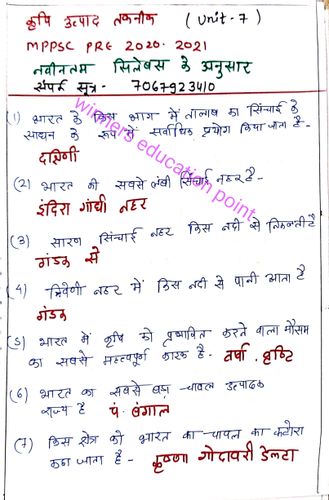 कृषि उत्पाद तकनीक (Unit-7)
MPPSC PRE 2020-2021
नवीनतम सिलेबस के अनुसार
संपर्क सूत्र- 7067923410
winners education point
(1) भारत के किस भाग में तालाब का सिंचाई के
साधन के रूप में सर्वाधिक प्रयोग किया जाता है-
दक्षिणी
(2) भारत की सबसे लंबी सिंचाई नहर है-
इंदिरा गांधी नहर
(3) सारण सिंचाई नहर किस नदी से निकलती है
गंडक से
(4) त्रिवेणी नहर में किस नदी से पानी आता है
गंडक
(5) भारत में कृषि को प्रभावित करने वाला मौसम
का सबसे महत्वपूर्ण कारक है- वर्षा, वृष्टि
(6) भारत का सबसे बड़ा चावल उत्पादक
राज्य है पं. बंगाल
(7) किस क्षेत्र को भारत का चावल का कटोरा
कहा जाता है- कृष्णा गोदावरी डेल्टा